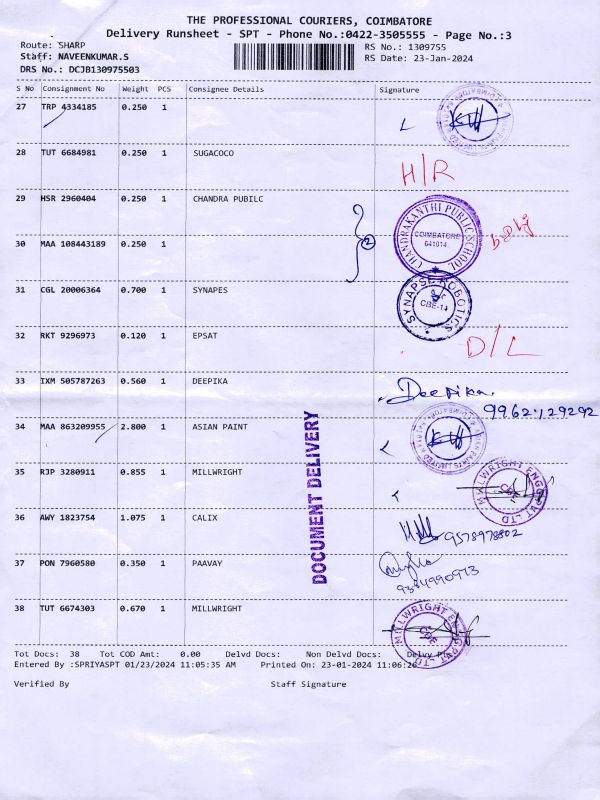 THE PROFESSIONAL COURIERS, COIMBATORE
Delivery Runsheet - SPT - Phone No.:0422-3505555 - Page No.:3
Route: SHARP
RS No.: 1309755
Staff: NAVEENKUMAR.S
RS Date: 23-Jan-2024
DRS No.: DCJB130975503
S No Consignment No Weight PCS Consignee Details Signature
27 TRP 4334185 0.250 1
28 TUT 6684981 0.250 1 SUGACOCO H/R
29 HSR 2960404 0.250 1 CHANDRA PUBILC
CHANDRAKANTHI PUBLIC SCHOOL
COIMBATORE
641014
2
30 MAA 108443189 0.250 1
31 CGL 20006364 0.700 1 SYNAPES
SYNAPSE ROBOTICS
CBE-14
32 RKT 9296973 0.120 1 EPSAT D/L
33 IXM 505787263 0.560 1 DEEPIKA Deepika.
9962129292
34 MAA 863209955 2.800 1 ASIAN PAINT
DOCUMENT DELIVERY
35 RJP 3280911 0.855 1 MILLWRIGHT
MILLWRIGHT ENGG PVT LTD
CBE
36 AWY 1823754 1.075 1 CALIX 9578978802
37 PON 7960580 0.350 1 PAAVAY
9384990973
38 TUT 6674303 0.670 1 MILLWRIGHT
MILLWRIGHT ENGG PVT LTD
CBE
Tot Docs: 38 Tot COD Amt: 0.00 Delvd Docs: Non Delvd Docs: Delvy
Entered By :SPRIYASPT 01/23/2024 11:05:35 AM Printed On: 23-01-2024 11:06:20
Verified By Staff Signature